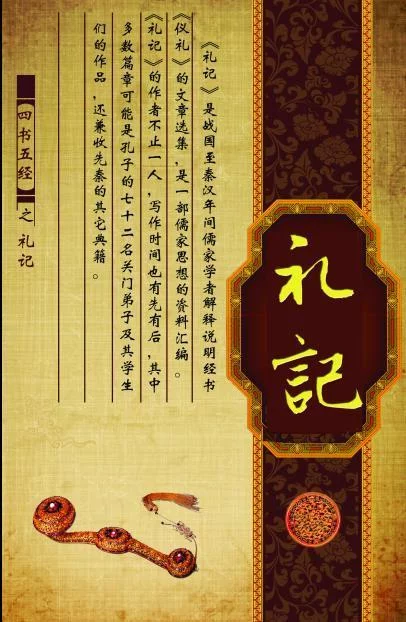 礼記
《礼记》是战国至秦汉年间儒家学者解释说明经书
《仪礼》的文章选集，是一部儒家思想的资料汇编。
《礼记》的作者不止一人，写作时间也有先有后，其中
多数篇章可能是孔子的七十二名关门弟子及其学生
们的作品，还兼收先秦的其它典籍。
（四书五经）之 礼记